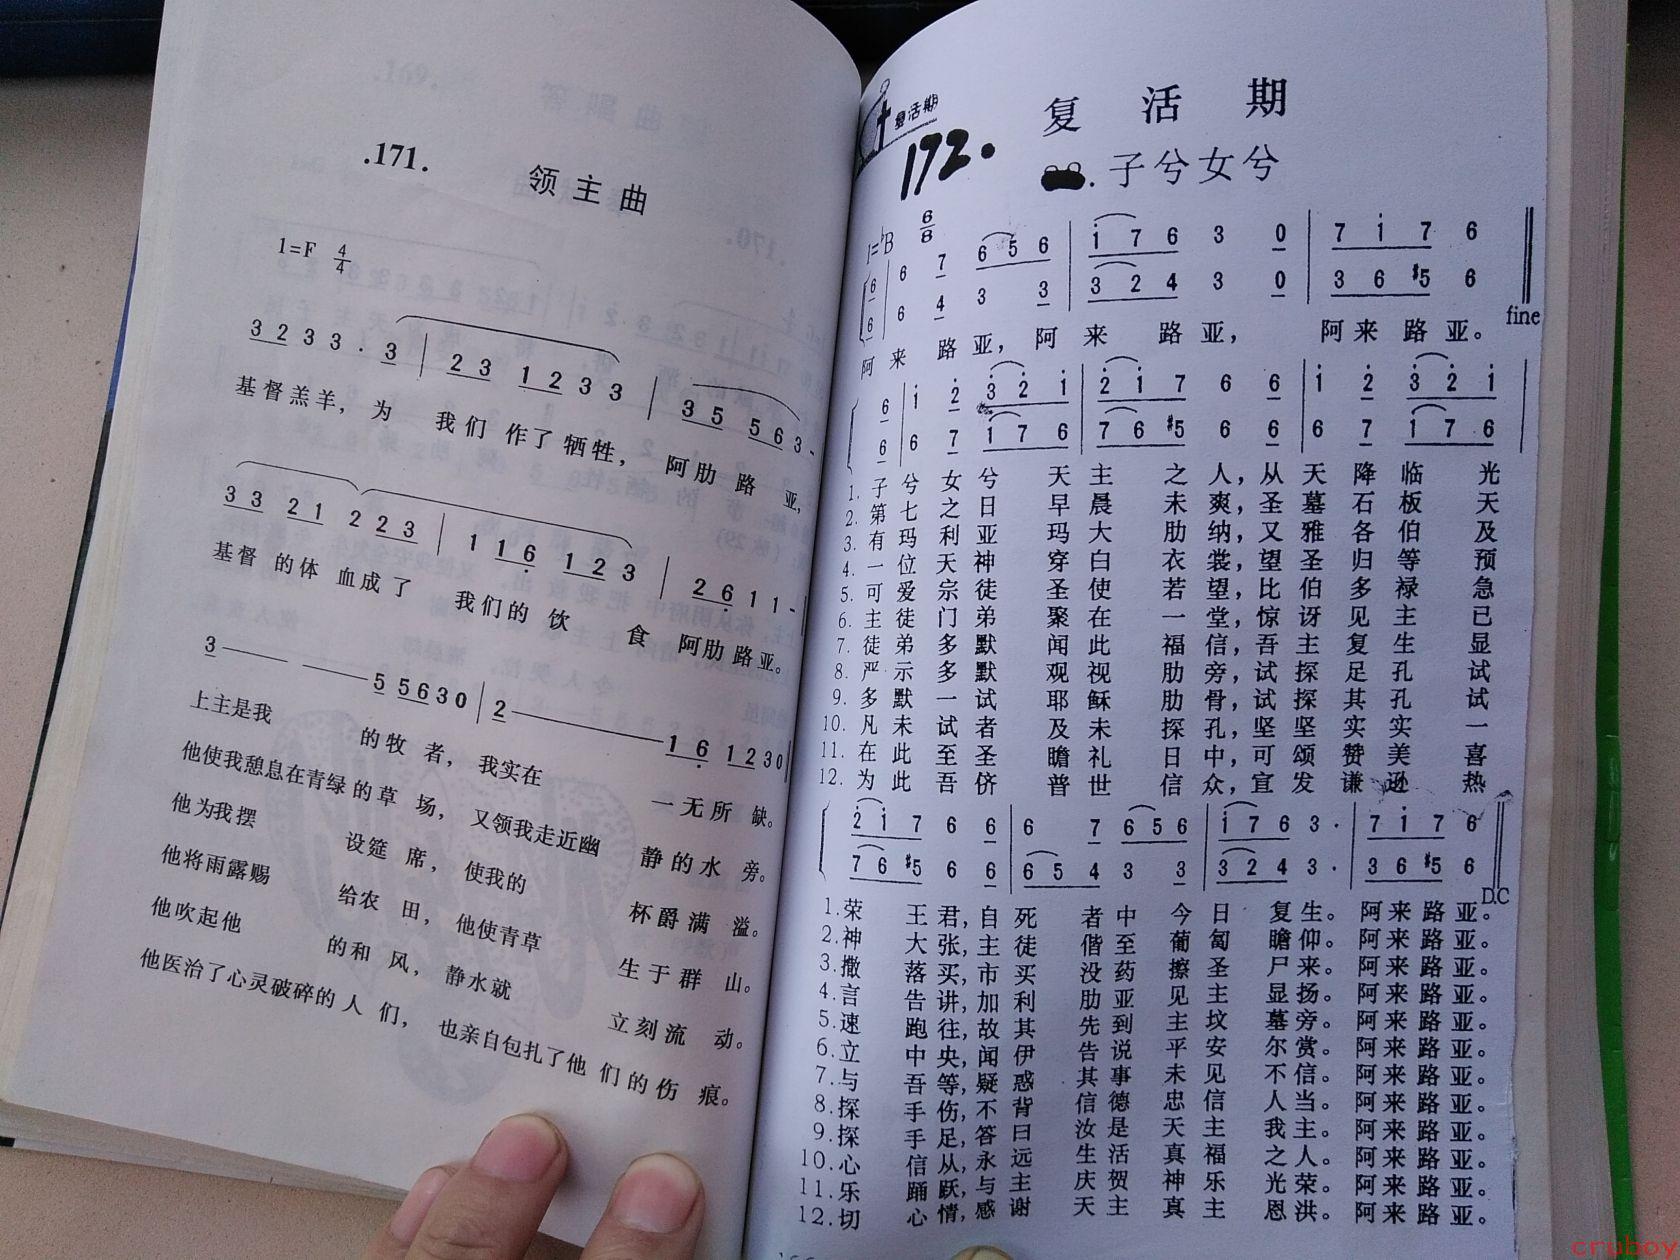 .171.
领主曲
1=F 4/4
3 2 3 3 · 3 | 2 3 1 2 3 3 | 3 5 5 6 3 -
基督羔羊，为 我们 作了牺牲，阿肋 路 亚，
3 3 2 1 2 2 3 | 1 1 6 1 2 3 | 2 6 1 1 - |
基督 的体 血成了 我们的 饮 食 阿肋路亚。
3 —— —— 5 5 6 3 0 | 2 —— 1 6 1 2 3 0 |
上主是我 的牧 者，我实在 一无所 缺。
他使我憩息在青绿的草 场，又领我走近幽 静的水 旁。
他为我摆 设筵 席，使我的 杯爵满 溢。
他将雨露赐 给农 田，他使青草 生于群 山。
他吹起他 的和 风，静水就 立刻流 动。
他医治了心灵破碎的人 们，也亲自包扎了他 们的伤 痕。
复活期
172.
复 活 期
.子兮女兮
1=♭B 6/8
6 | 6 7 6 5 6 | i 7 6 3 0 | 7 i 7 6 ‖
6 | 6 4 3 3 | 3 2 4 3 0 | 3 6 #5 6 ‖
fine
阿 来 路 亚，阿 来 路 亚， 阿 来 路 亚。
6 | i 2 3 2 i | 2 i 7 6 6 | i 2 3 2 i |
6 | 6 7 1 7 6 | 7 6 #5 6 6 | 6 7 1 7 6 |
1. 子 兮 女 兮 天 主 之 人，从 天 降 临 光
2. 第 七 之 日 早 晨 未 爽，圣 墓 石 板 天
3. 有 玛 利 亚 玛 大 肋 纳，又 雅 各 伯 及
4. 一 位 天 神 穿 白 衣 裳，望 圣 归 等 预
5. 可 爱 宗 徒 圣 使 若 望，比 伯 多 禄 急
6. 主 徒 门 弟 聚 在 一 堂，惊 讶 见 主 已
7. 徒 弟 多 默 闻 此 福 信，吾 主 复 生 显
8. 严 示 多 默 观 视 肋 旁，试 探 足 孔 试
9. 多 默 一 试 耶 稣 肋 骨，试 探 其 孔 试
10. 凡 未 试 者 及 未 探 孔，坚 坚 实 实 一
11. 在 此 至 圣 瞻 礼 日 中，可 颂 赞 美 喜
12. 为 此 吾 侪 普 世 信 众，宣 发 谦 逊 热
2 i 7 6 6 | 6 7 6 5 6 | i 7 6 3 · | 7 i 7 6 ‖
7 6 #5 6 6 | 6 5 4 3 3 | 3 2 4 3 · | 3 6 #5 6 ‖
D.C
1.荣 王 君，自 死 者 中 今 日 复 生。阿 来 路 亚。
2.神 大 张，主 徒 偕 至 葡 匐 瞻 仰。阿 来 路 亚。
3.撒 落 买，市 买 没 药 擦 圣 尸 来。阿 来 路 亚。
4.言 告 讲，加 利 肋 亚 见 主 显 扬。阿 来 路 亚。
5.速 跑 往，故 其 先 到 主 坟 墓 旁。阿 来 路 亚。
6.立 中 央，闻 伊 告 说 平 安 尔 赏。阿 来 路 亚。
7.与 吾 等，疑 惑 其 事 未 见 不 信。阿 来 路 亚。
8.探 手 伤，不 背 信 德 忠 信 人 当。阿 来 路 亚。
9.探 手 足，答 曰 汝 是 天 主 我 主。阿 来 路 亚。
10.心 信 从，永 远 生 活 真 福 之 人。阿 来 路 亚。
11.乐 踊 跃，与 主 庆 贺 神 乐 光 荣。阿 来 路 亚。
12.切 心 情，感 谢 天 主 真 主 恩 洪。阿 来 路 亚。
cruboy